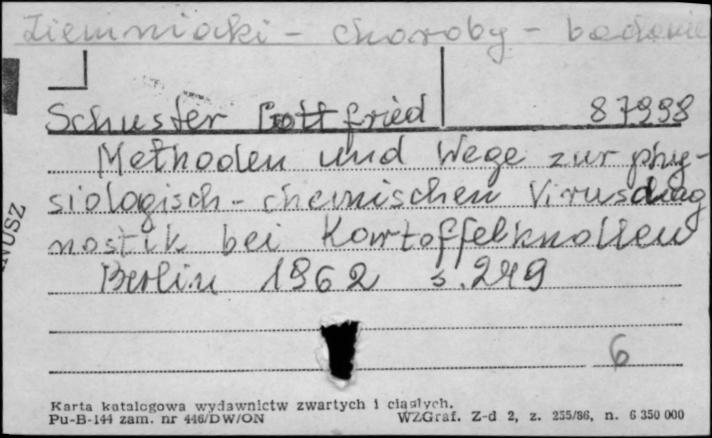 Ziemniaki - choroby - badanie
Schuster Gottfried 87998
Methoden und Wege zur phy-
siologisch-chemischen Virusdiag
nostik bei Kartoffelknollen
Berlin 1962 s. 249
6
NUSZ
Karta katalogowa wydawnictw zwartych i ciągłych.
Pu-B-144 zam. nr 446/DW/ON WZGraf. Z-d 2, z. 255/86, n. 6 350 000